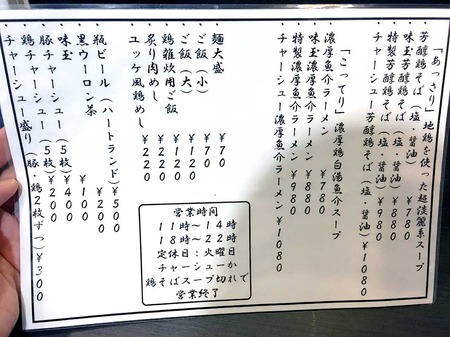 「あっさり」地鶏を使った超淡麗系スープ
・芳醇鶏そば(塩・醤油) ¥780
・味玉芳醇鶏そば(塩・醤油) ¥880
・特製芳醇鶏そば(塩・醤油) ¥980
・チャーシュー芳醇鶏そば(塩・醤油) ¥1080
「こってり」濃厚鶏白湯魚介スープ
・濃厚魚介ラーメン ¥780
・味玉濃厚魚介ラーメン ¥880
・特製濃厚魚介ラーメン ¥980
・チャーシュー濃厚魚介ラーメン ¥1080
・麺大盛
・ご飯(小) ¥70
・ご飯(大)
・鶏雑炊用ご飯
・炙り肉めし ¥220
・ユッケ風鶏めし ¥220
・瓶ビール(ハートランド)¥500
・黒ウーロン茶
・味玉 ¥100
・豚チャーシュー(5枚) ¥400
・鶏チャーシュー(5枚) ¥200
・チャーシュー盛り(豚・鶏2枚ずつ)¥300
営業時間
11時〜14時
18時〜22時
定休日:火曜日
チャーシューか
鶏そばスープ切れで
営業終了